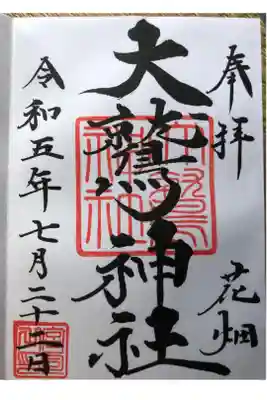 奉拝
花畑
大鷲神社
令和五年七月二十 日